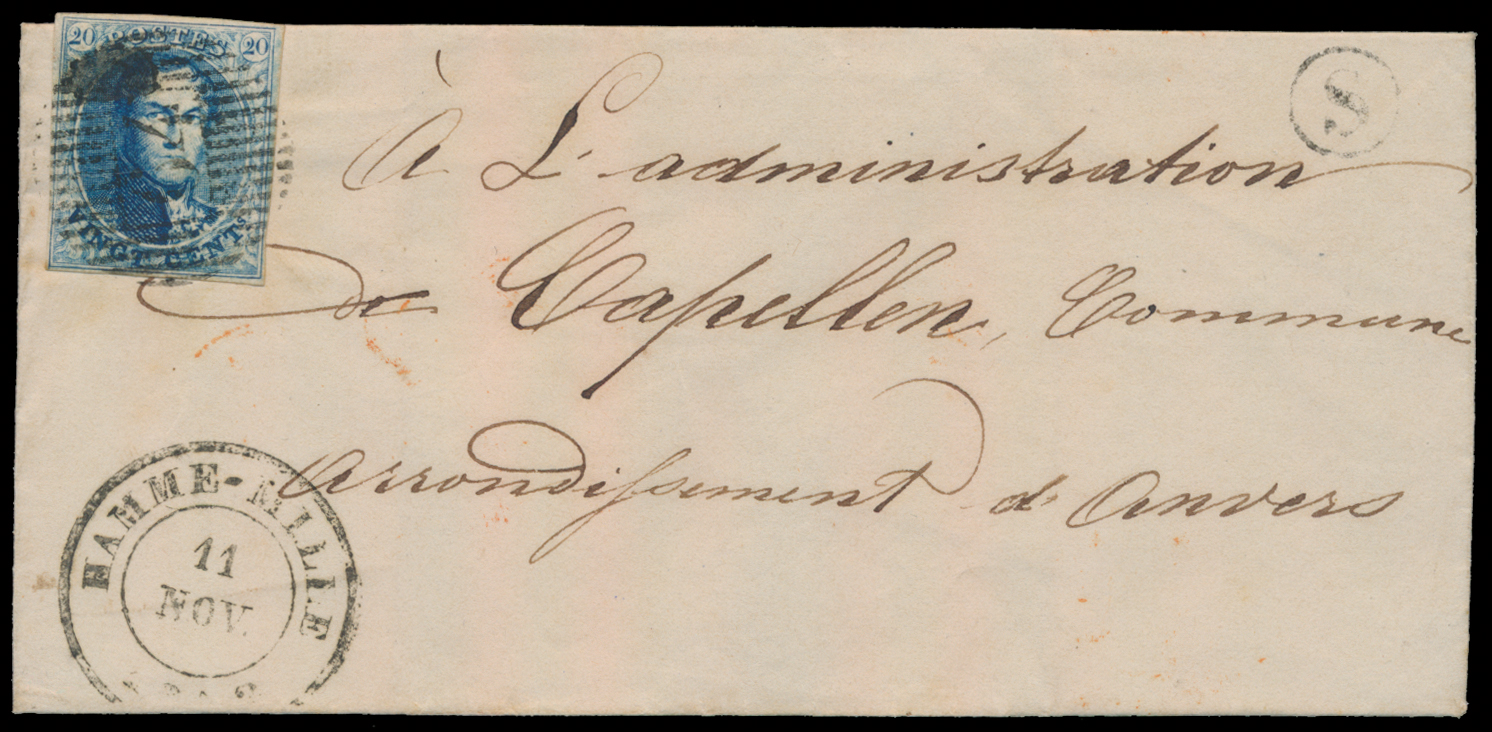 20 POSTES 20
VINGT CENTS
S
À L'administration
de Capellen, Commune
Arrondissement d'Anvers
HAMME-MILLE
11
NOV.